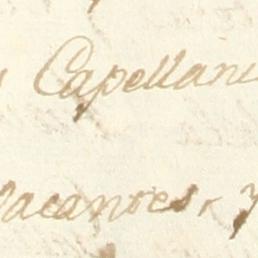 Capellani
Vacantes, y